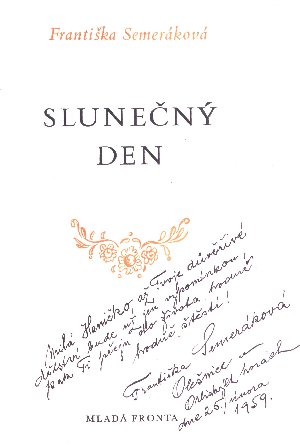 Františka Semeráková
SLUNEČNÝ
DEN
Milá Heničko, až Tvoje důvěřivé
dětství bude už jen vzpomínkou
pak Ti přeju do života hodně
hodně štěstí!
Františka Semeráková
Olešnice v
Orlických horách
dne 25. února
1959.
MLADÁ FRONTA